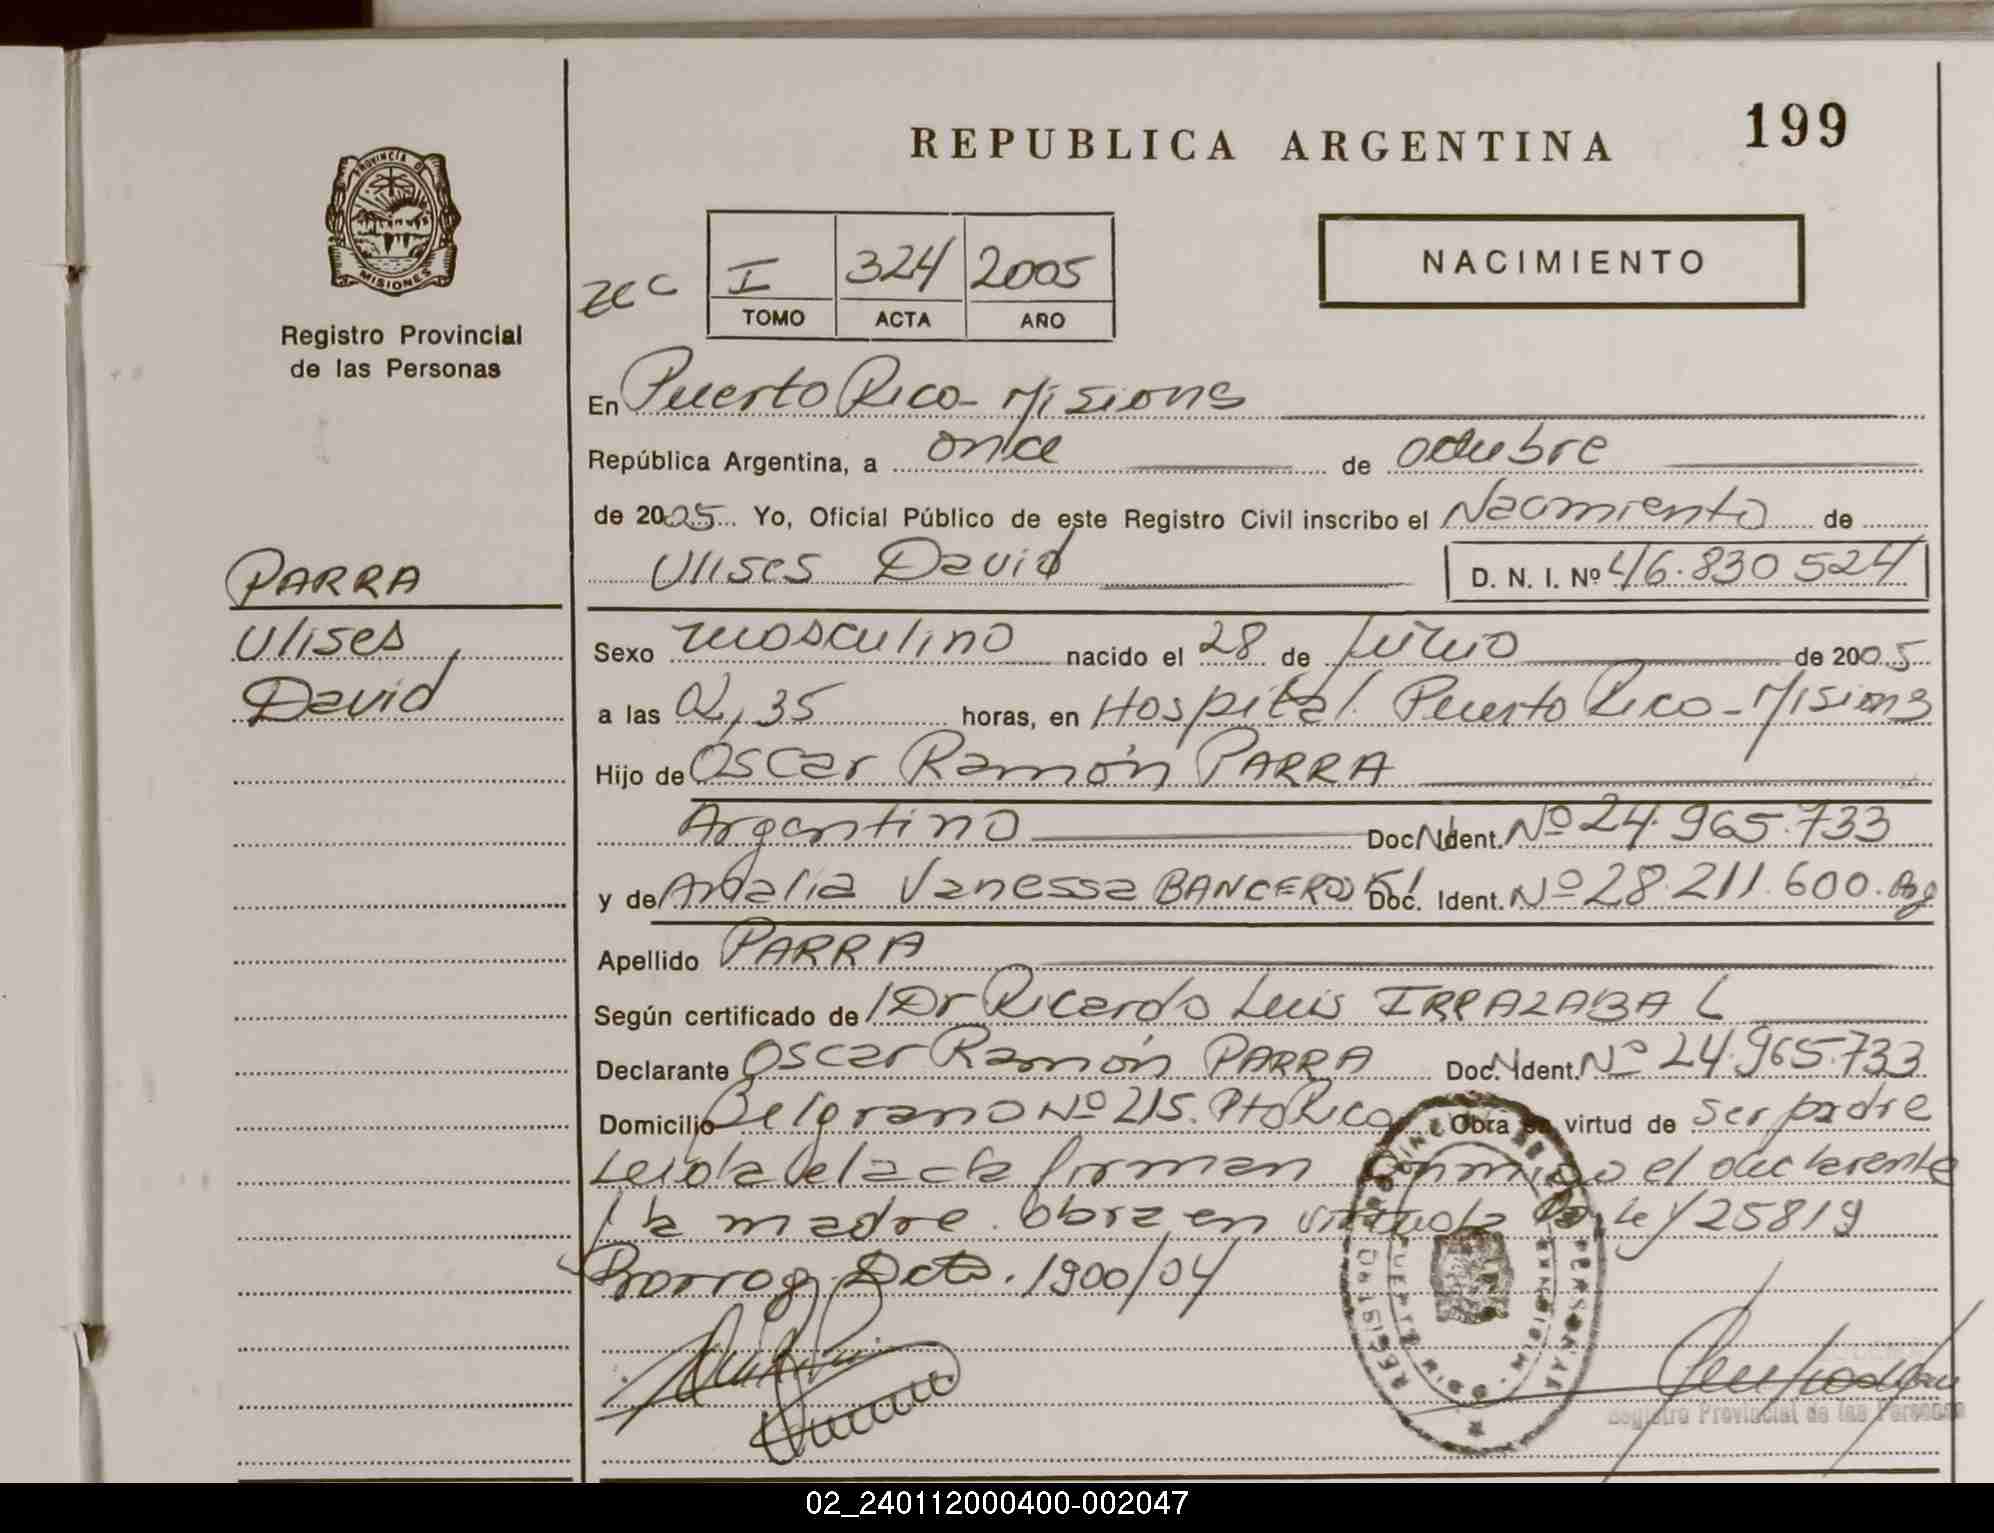 199
REPUBLICA ARGENTINA
NACIMIENTO
PROVINCIA DE
MISIONES
Registro Provincial
de las Personas
I 324 2005
TOMO ACTA AÑO
En Puerto Rico - Misiones
República Argentina, a once de octubre
de 2005 Yo, Oficial Público de este Registro Civil inscribo el Nacimiento de
Ulises David D. N. I. Nº 46.830 524
PARRA
Ulises
David
Sexo masculino nacido el 28 de de 2005
a las 02,35 horas, en Hospital Puerto Rico - Misiones
Hijo de Oscar Ramón PARRA
Argentino Doc. Ident. Nº 24.965.733
y de Amalia Vanessa Doc. Ident. Nº 28.211.600. Arg
Apellido PARRA
Según certificado de Dr Ricardo Luis IRRAZABAL
Declarante Oscar Ramón PARRA Doc. Ident. Nº 24.965.733
Domicilio Belgrano Nº 215. Pto Rico Obra en virtud de ser padre
Leída el acta firman conmigo el declarante
y la madre. Obra en virtud de la Ley 25819
Prorrog. Dcto. 1900/04
Registro Provincial de las Personas
02_240112000400-002047